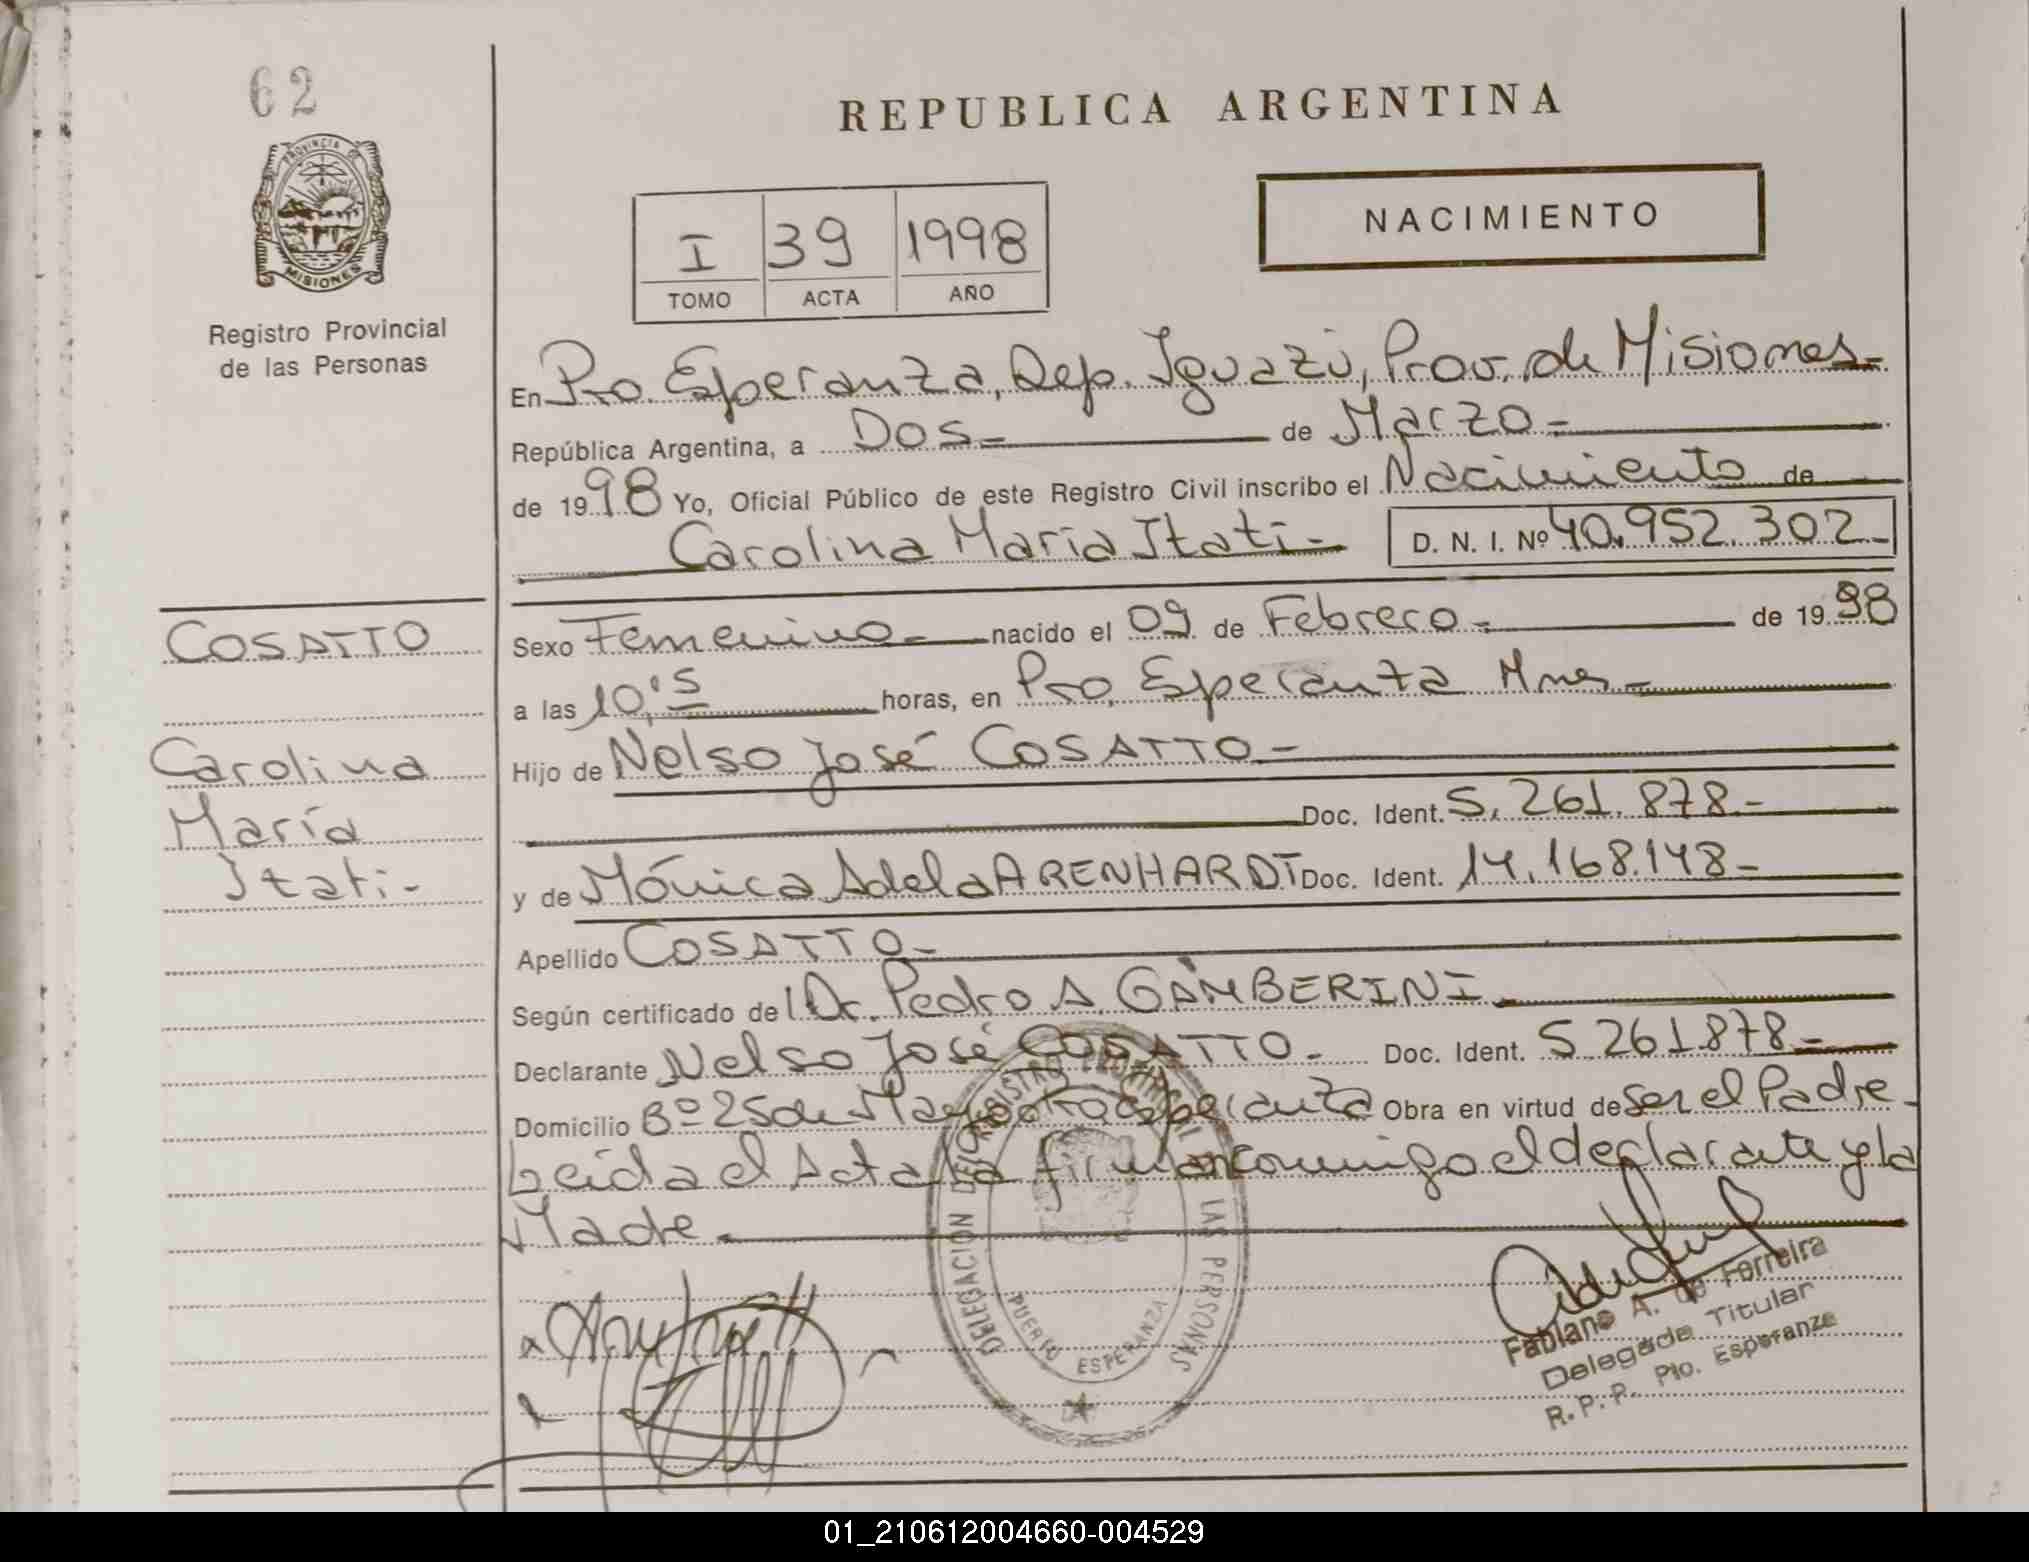 62
REPUBLICA ARGENTINA
PROVINCIA DE
MISIONES
Registro Provincial
de las Personas
I 39 1998
TOMO ACTA AÑO
NACIMIENTO
En Pto. Esperanza, Dep. Iguazú, Prov. de Misiones-
República Argentina, a Dos- de Marzo-
de 1998 Yo, Oficial Público de este Registro Civil inscribo el Nacimiento de
Carolina María Itatí- D. N. I. Nº 40.952.302-
COSATTO
Carolina
María
Itati-
Sexo Femenino- nacido el 09 de Febrero- de 1998
a las 10,15 horas, en Pto. Esperanza Mnes-
Hijo de Nelso José COSATTO-
Doc. Ident. 5.261.878-
y de Mónica Adela ARENHARDT Doc. Ident. 14.168.148-
Apellido COSATTO-
Según certificado del Dr. Pedro A. GAMBERINI-
Declarante Nelso José COSATTO- Doc. Ident. 5.261.878-
Domicilio Bº 25 de Mayo Pto Esperanza Obra en virtud de ser el Padre-
Leida el Acta la firman conmigo el declarante y la
Madre-
DELEGACION DEL REGISTRO PROVINCIAL DE LAS PERSONAS
PUERTO ESPERANZA
Fabiano A. de Ferreira
Delegado Titular
R.P.P. Pto. Esperanza
01_210612004660-004529